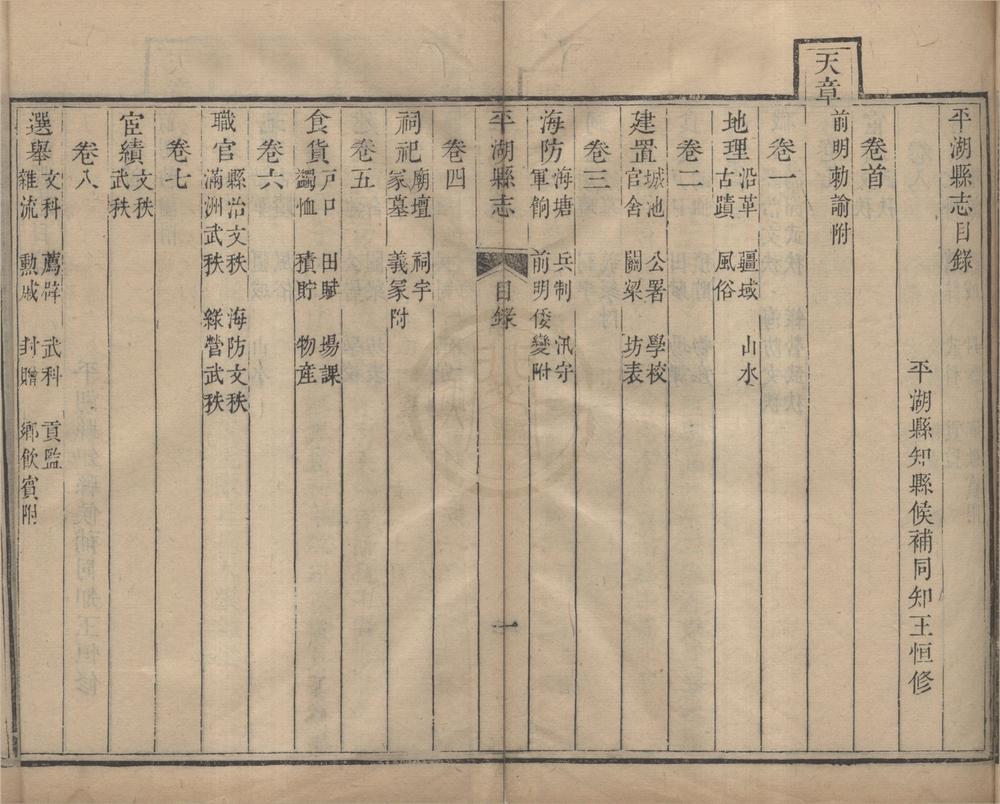 平湖縣志目錄
平湖縣知縣候補同知王恒修
卷首
天章
前明勅諭附
卷一
地理 沿革 疆域 山水
古蹟 風俗
卷二
建置 城池 公署 學校
官舍 關梁 坊表
卷三
海防 海塘 兵制 汛守
軍餉 前明倭變附
平湖縣志 目錄 一
卷四
祠祀 廟壇 祠宇
冢墓 義冢附
卷五
食貨 戶口 田賦 場課
蠲恤 積貯 物產
卷六
職官 縣治文秩 海防文秩
滿洲武秩 綠營武秩
卷七
宦績 文秩
武秩
卷八
選舉 文科 薦辟 武科 貢監
雜流 勲戚 封贈 鄉飲賓附